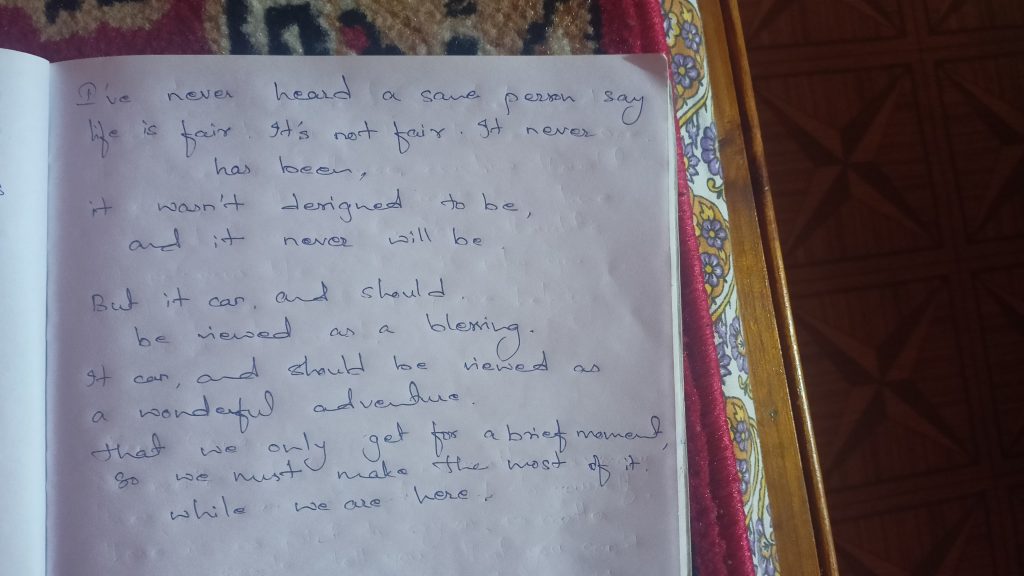 I've never heard a sane person say
life is fair. It's not fair. It never
has been,
it wasn't designed to be,
and it never will be.
But it can, and should.
be viewed as a blessing.
It can, and should be viewed as
a wonderful adventure.
that we only get for a brief moment,
so we must make the most of it.
while we are here.